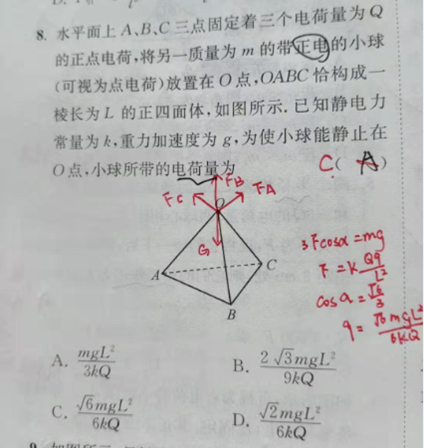 8. 水平面上A、B、C三点固定着三个电荷量为Q
的正点电荷,将另一质量为m的带正电的小球
(可视为点电荷)放置在O点,OABC恰构成一
棱长为L的正四面体,如图所示.已知静电力
常量为k,重力加速度为g,为使小球能静止在
O点,小球所带的电荷量为 C( A )
FC FB FA
O
G
A C
B
3Fcosα=mg
F=k Qq/L²
cosα=√6/3
q=√6mgL²/6kQ
A. mgL²/3kQ B. 2√3mgL²/9kQ
C. √6mgL²/6kQ D. √2mgL²/6kQ